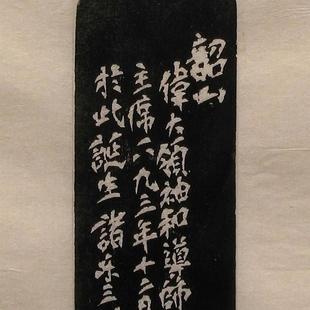 韶山
偉大領袖和導師
主席一八九三年十二月
於此誕生諸乐三